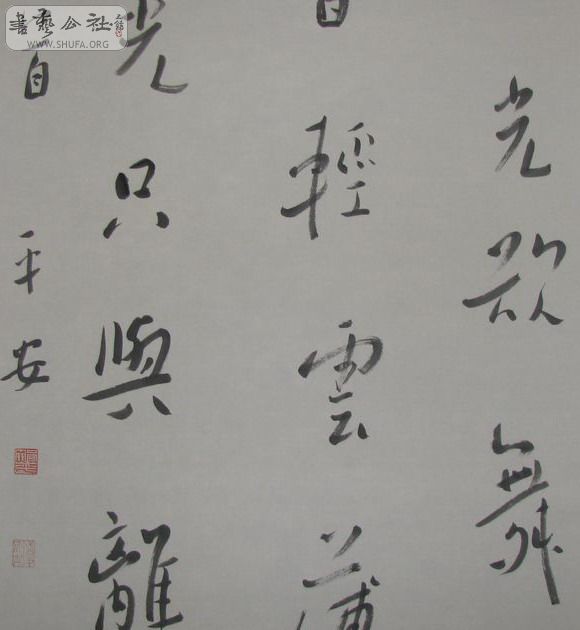 書藝公社
WWW.SHUFA.ORG
光欲舞
輕雲薄
光只與離
自平安